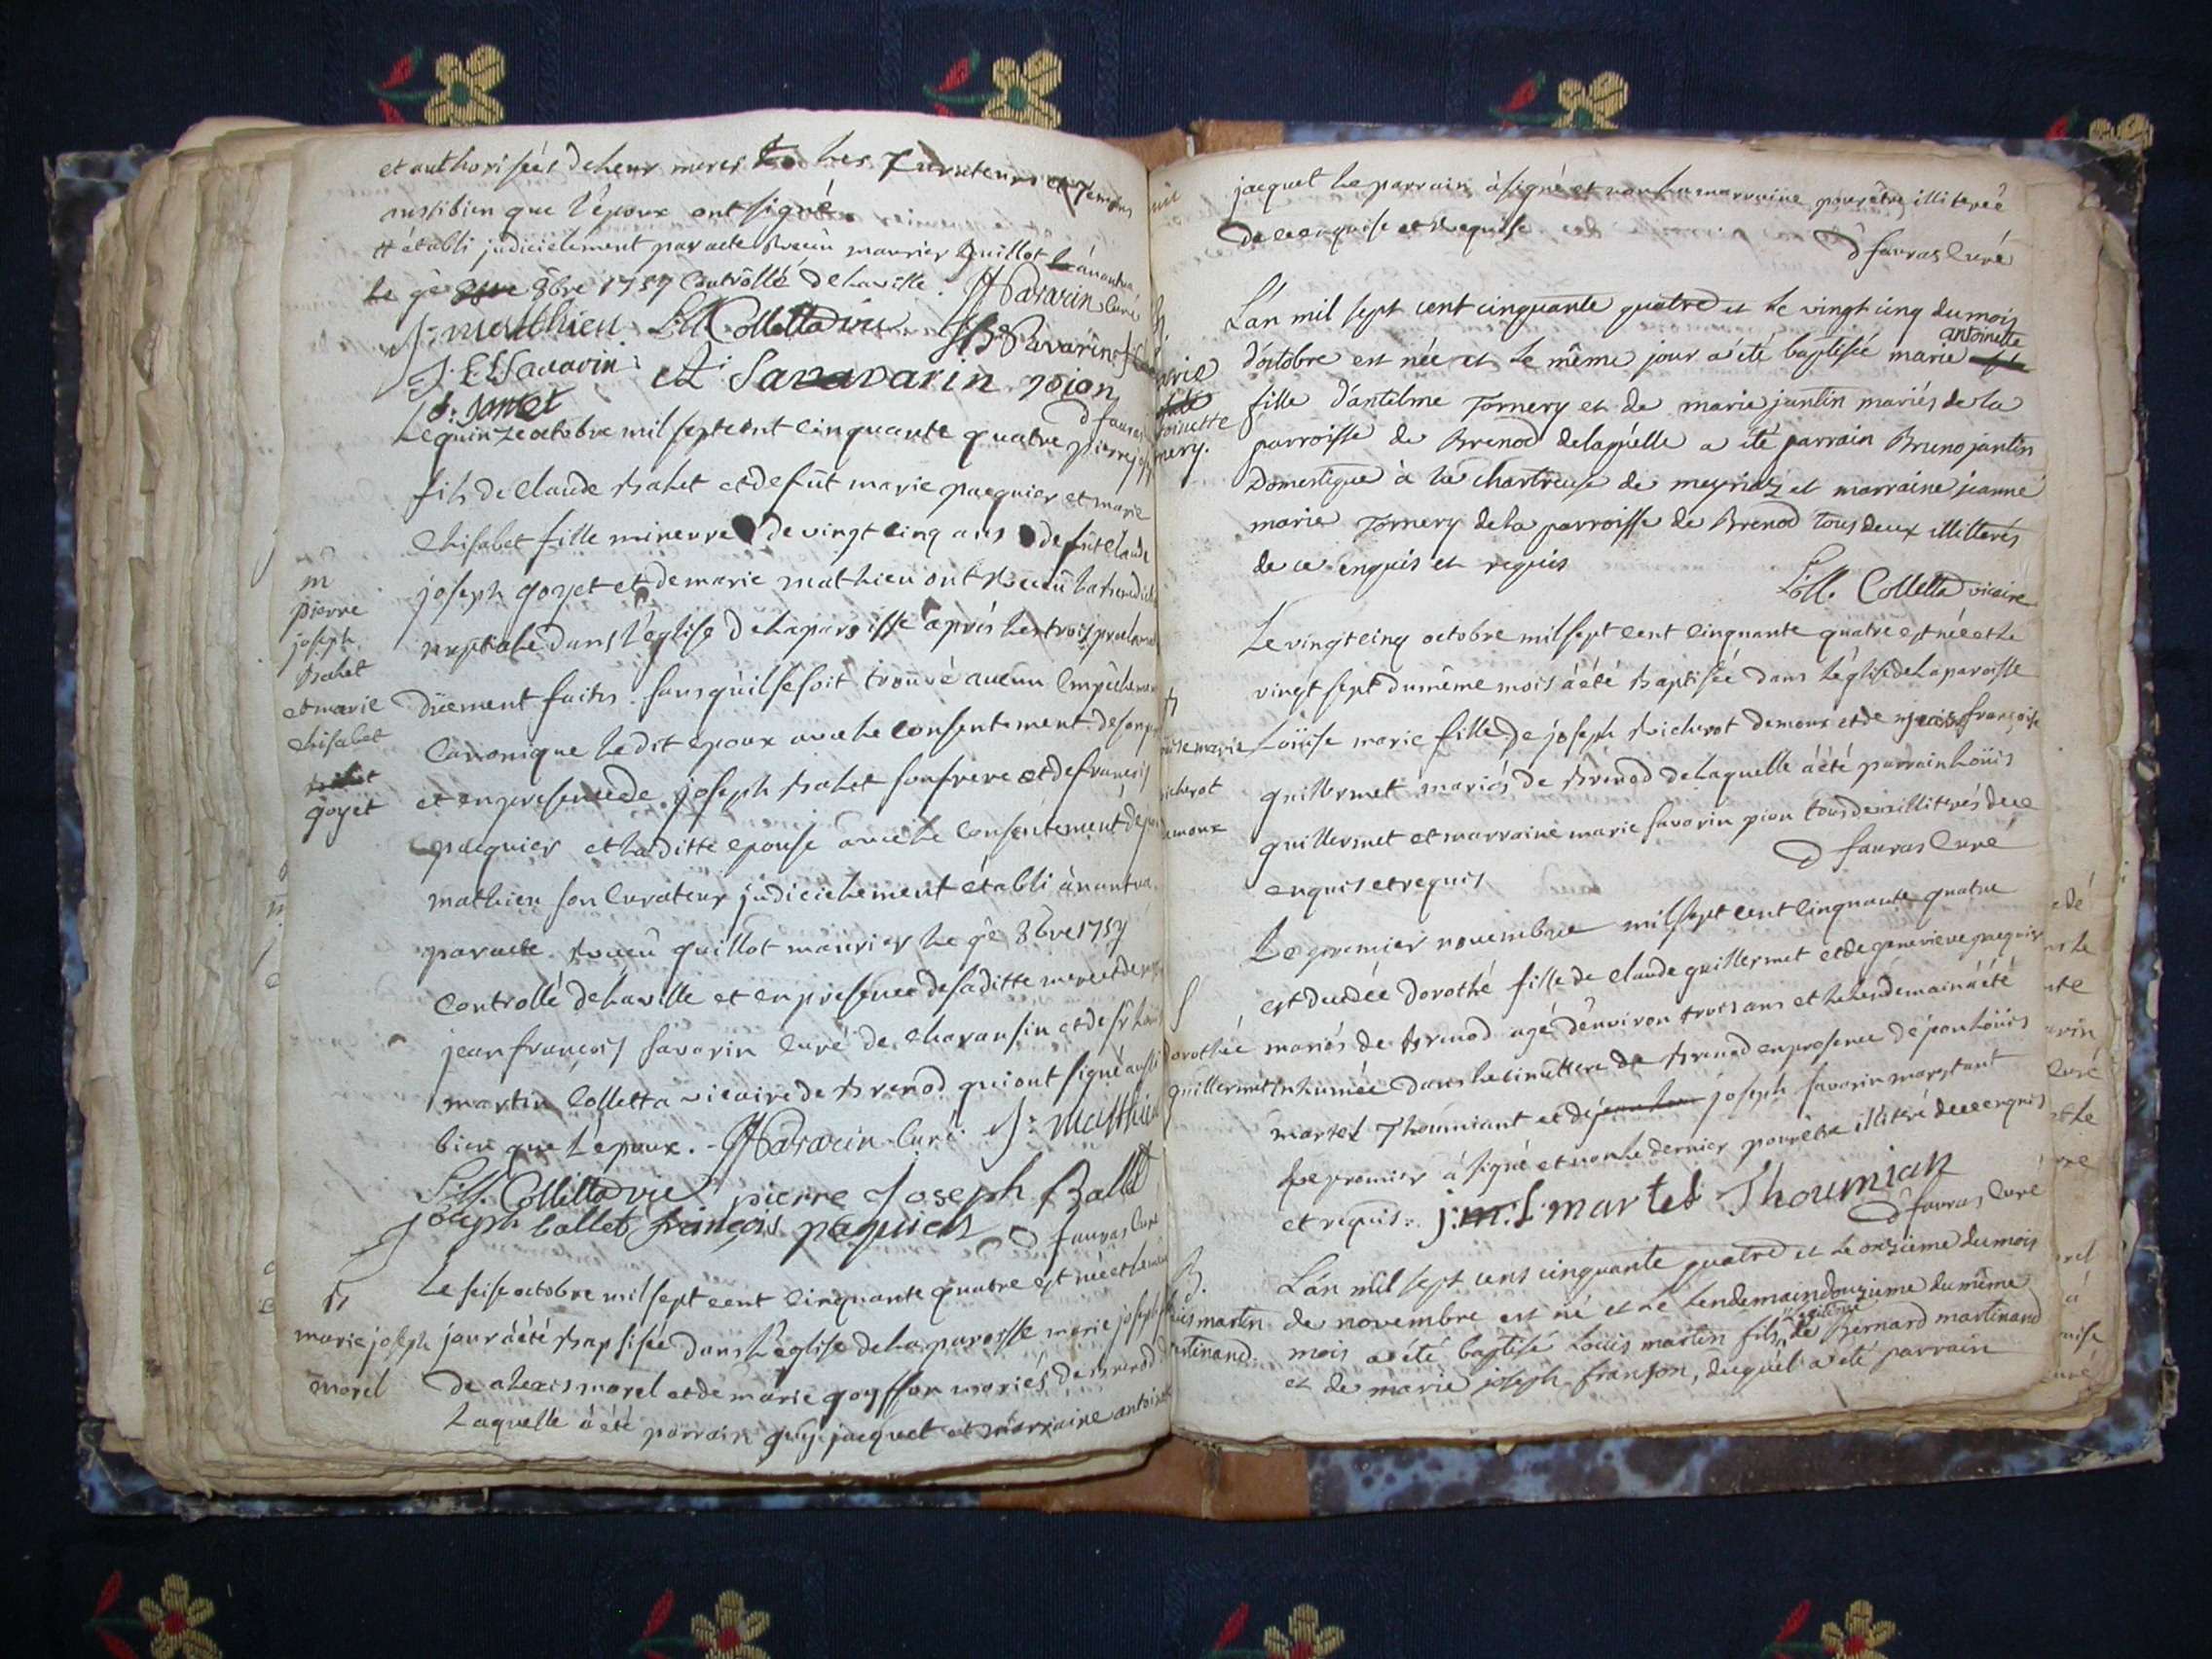 et authorisées de leur meres les Curateurs et temoins
aussi bien que l'epoux ont signé
établi judicielement par acte Reçeu maurier guillot à nantua
Le 9e 8bre 1754 Controllé de laville. Savarin Curé
J: matthieu L: M. Colletta vic Savarin
Savarin Savarin pion
J: Jantet
D fauras
Le quinze octobre mil sept cent cinquante quatre pierre jos
fils de Claude Balet et de fût marie paquier et marie
Elisabet fille mineure de vingt cinq ans de fût Claude
joseph goyet et de marie mathieu ont Reçeu la benedict
nuptiale dans l'église de la paroisse aprés les trois proclamat
düement faites sans qu'il se soit trouvé aucun Empêchemen
Canonique le dit epoux avec le consentement de son p
et en presence de joseph Balet son frere et de françois
paquier et la ditte epouse avec le consentement de
mathieu son Curateur judicielement établi à nantua
par acte Reçeu guillot maurier le 9e 8bre 1754
Controllé de la ville et en presence de sa ditte mere et de
jean françois Savarin Curé de chavansin et de Sr Loüis
martin Colletta vicaire de Brenod qui ont signé aussi
bien que l'epoux. Savarin Curé J: Matthieu
L: M. Colletta vic pierre Joseph Ballet
joseph ballet françois paquier D fauras Curé
m
pierre
joseph
Balet
et marie
elisabet
goyet
Le seise octobre mil sept cent cinquante quatre est née et le même
jour à été Baptisée dans l'église de la paroisse marie joseph
de alexis morel et de marie goyffon mariés de Brenod d
Laquelle à été parrain guy jacquet et marraine antoinet
B
marie joseph
morel
jacquet le parrain à signé et non la marraine pour être illiterée
de ce enquise et Requise
D fauras Curé
L'an mil sept cent cinquante quatre et le vingt cinq du mois
d'octobre est née et le même jour a été baptisée marie antoinette
fille d'antelme Tornery et de marie jantin mariés de la
parroisse de Brenod de laquelle a été parrain Bruno jantin
Domestique à la chartreuse de meyriaz et marraine jeanne
marie Tornery de la parroisse de Brenod tous deux illitterés
de ce enquis et requis
L: M. Colletta vicaire
Le vingt cinq octobre mil sept cent cinquante quatre est née et le
vingt sept du même mois à été Baptisée dans l'église de la paroisse
Loüise marie fille de joseph Richerot demoux et de françoise
guillermet mariés de Brenod de laquelle à été parrain Loüis
guillermet et marraine marie savarin pion tous deux illiterés de ce
enquis et requis
D fauras Curé
Le premier novembre mil sept cent cinquante quatre
est decedée Dorothé fille de claude guillermet et de genevieve paquier
mariés de Brenod agé d'environ trois ans et le lendemain à été
inhumée dans le cimettere de Brenod en presence de jean Loüis
martel Thoumiant et de joseph savarin marestant
Le premier à signé et non le dernier pour être illiteré de ce enquis
et requis. j: m: L martel Thoumian
D fauras Curé
dorothée
guillermet
L'an mil sept cens cinquante quatre et le onzieme du mois
de novembre est né et le lendemain douzieme du même
mois a été baptisé Louis martin fils légitime de Bernard martinand
et de marie joseph franson, duquel a été parrain
B.
martin